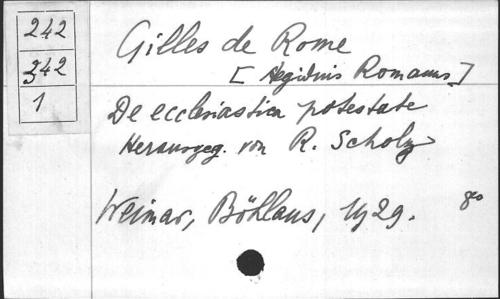 242
242
1
Gilles de Rome
[Aegidius Romanus]
De ecclesiastica potestate
Herausgeg. von R. Scholz
Weimar, Böhlaus, 1929. 8o